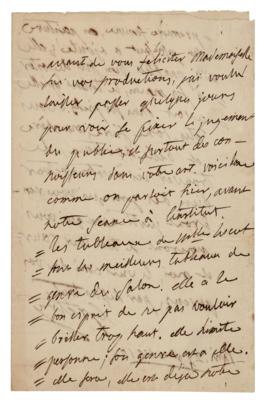 avant de vous feliciter Mademoiselle
sur vos productions, j'ai voulu
laisser passer quelques jours
pour voir se fixer le jugement
du public, et surtout des con-
noisseurs dans votre art. voici
comme on parloit hier, avant
notre seance à l'institut.
= les tableaux de Mlle Lescot
= sont les meilleurs tableaux de
= genre du Salon. elle a le
= bon esprit de ne pas vouloir
= trop haut. elle imite
= personne; son genre est a elle.
= elle sera, elle est déjà notre